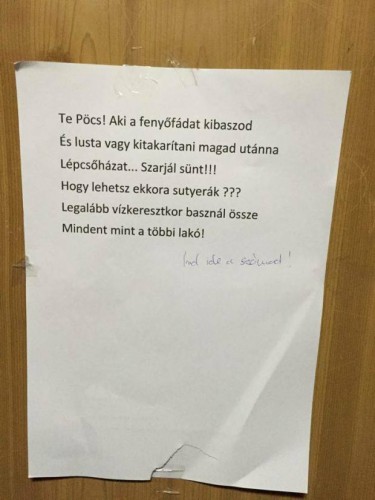 Te Pöcs! Aki a fenyőfádat kibaszod
És lusta vagy kitakarítani magad utánna
Lépcsőházat... Szarjál sünt!!!
Hogy lehetsz ekkora sutyerák ???
Legalább vízkeresztkor basznál össze
Mindent mint a többi lakó!
Írd ide a számod!